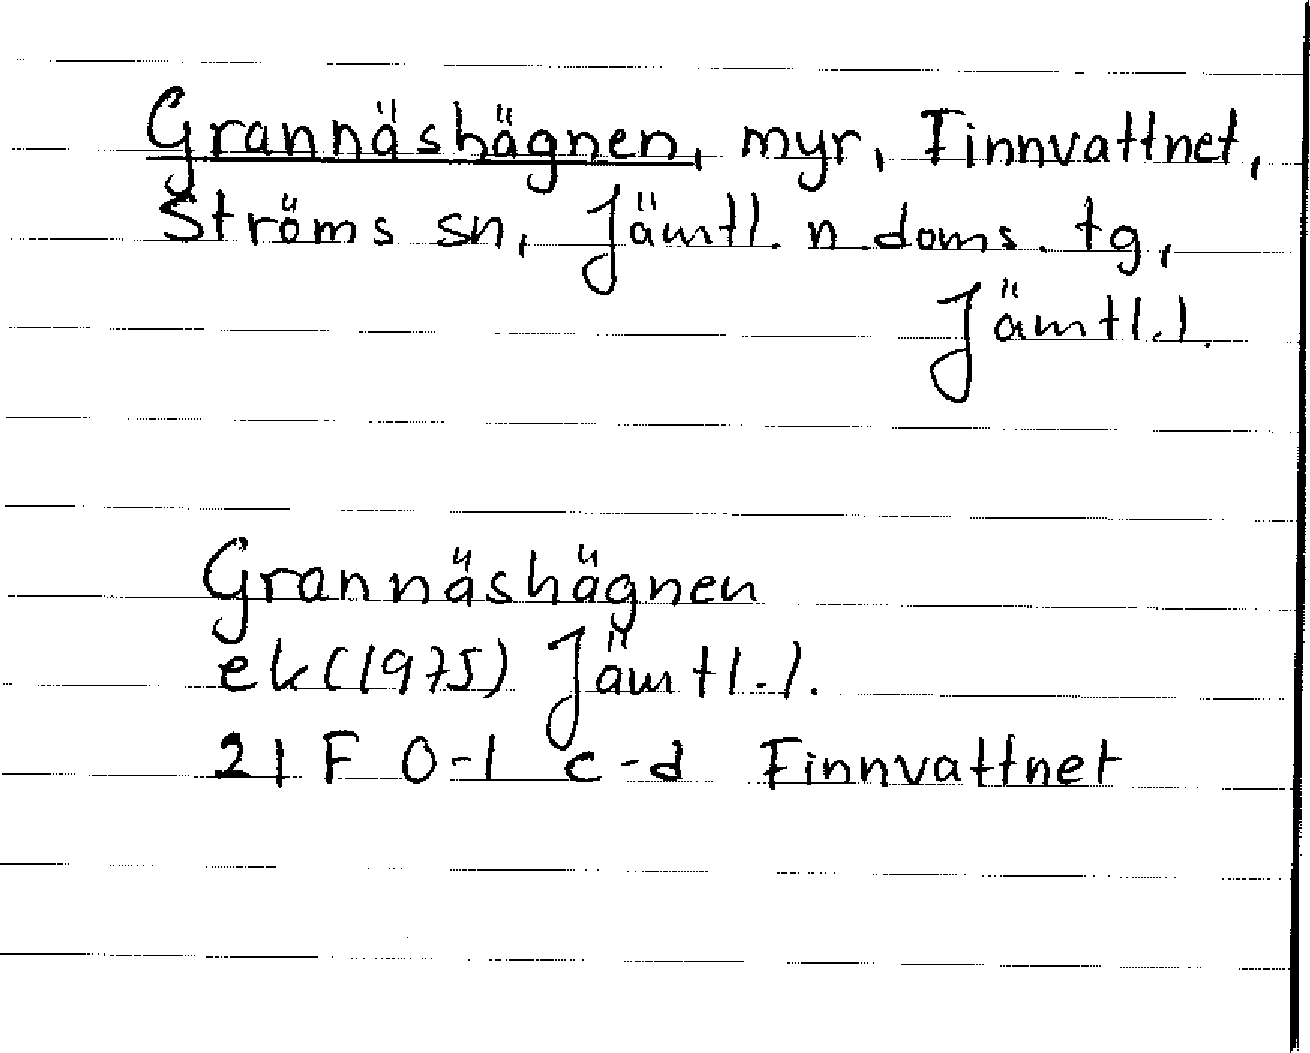 Grannäshägnen, myr, Finnvattnet,
Ströms sn, Jämtl. n doms. tg,
Jämtl.l.
Grannäshägnen
ek(1975) Jämtl.l.
21 F 0-1 c-d Finnvattnet